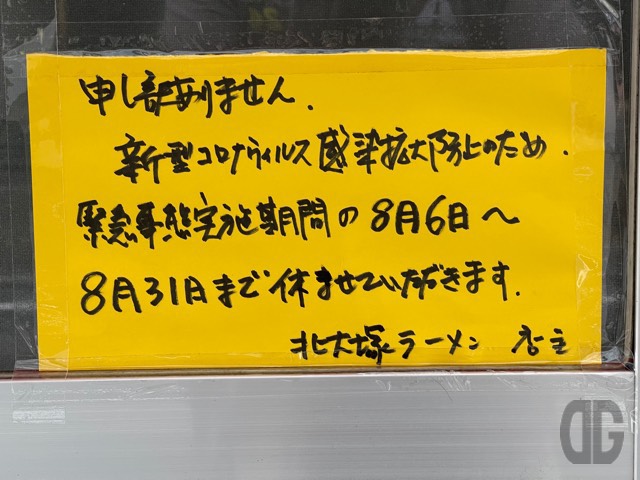 申し訳ありません.
新型コロナウィルス感染拡大防止のため.
緊急事態実施期間の8月6日〜
8月31日まで休ませていただきます.
北大塚ラーメン 店主
DG